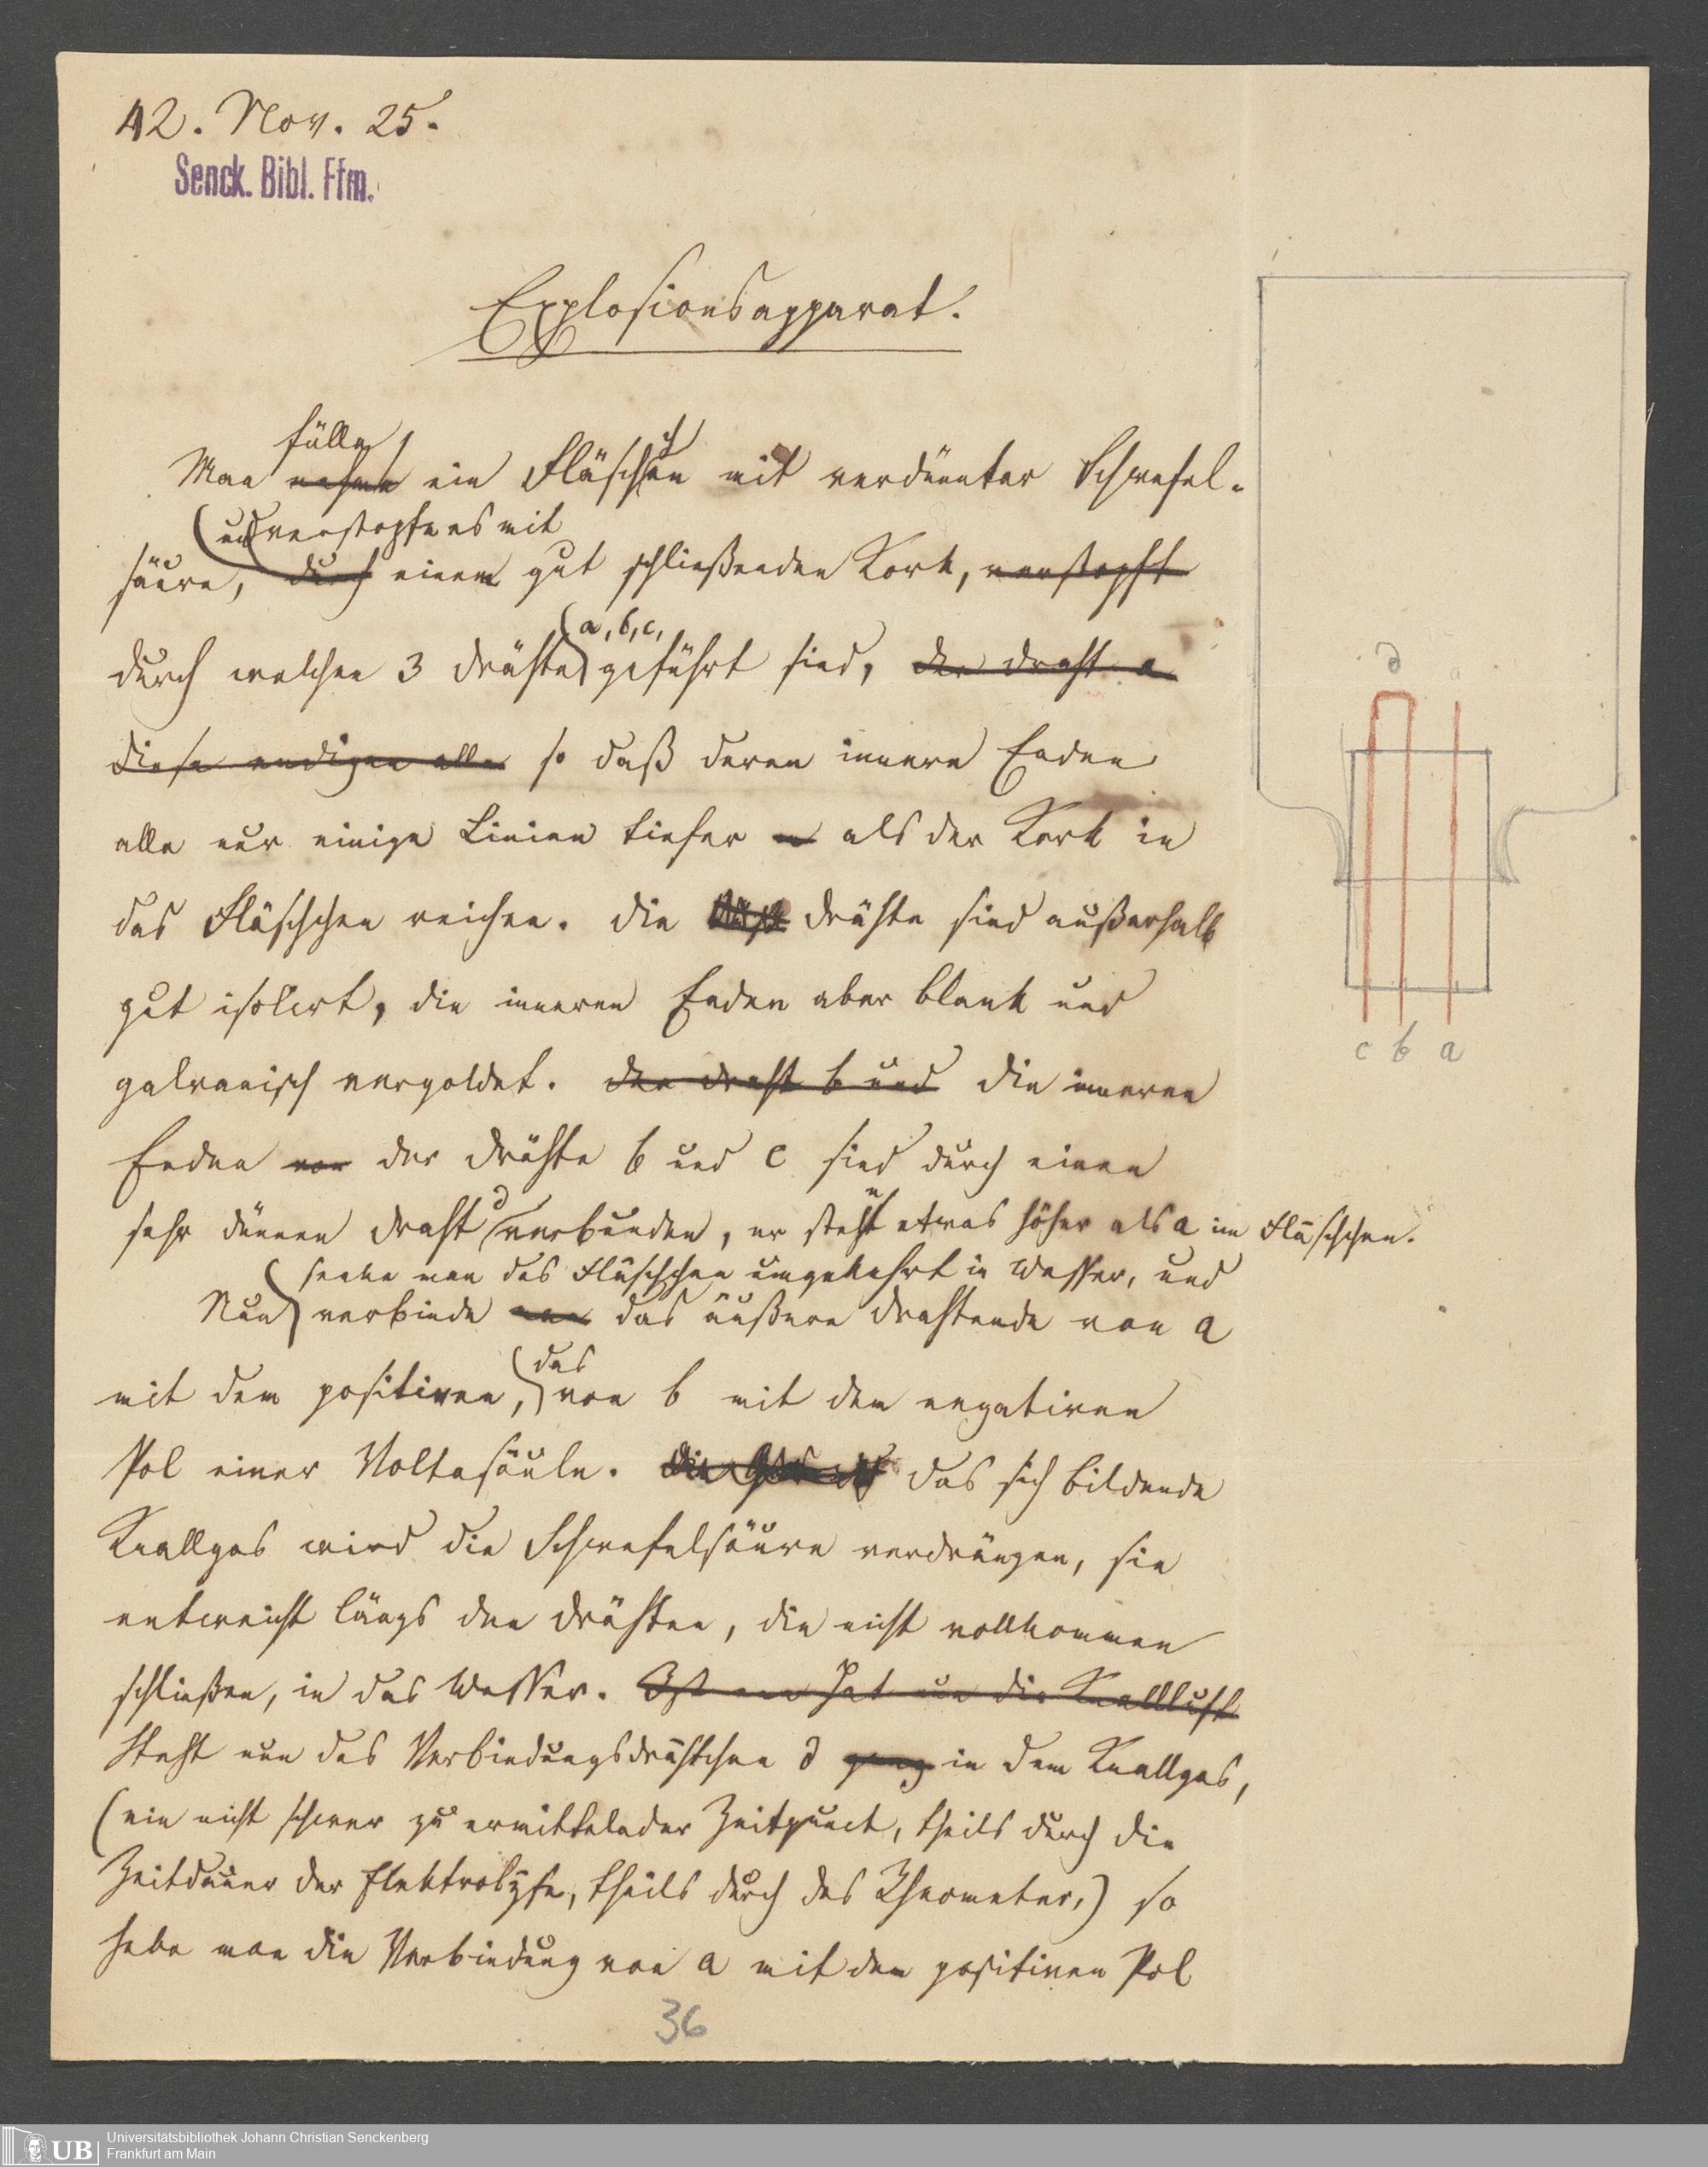 42. Nov. 25.
Senck. Bibl. Ffm.
Explosionsapparat.
fülle
Man nehme ein Fläschchen mit verdünnter Schwefel-
und verstopfe es mit
säure, durch einem gut schließenden Kork, verstopft
a, b, c,
durch welchen 3 Drähte geführt sind, der Draht a
diese endigen alle so daß deren innere Enden
alle nur einige Linien tiefer als der Kork in
das Fläschchen reichen. Die Drähte sind außerhalb
gut isolirt, die inneren Enden aber blank und
galvanisch vergoldet. der Draht b und Die inneren
Enden von der Drähte b und c sind durch einen
sehr dünnen Draht d verbunden, er steht etwas höher als a im Fläschchen.
senke man das Fläschchen umgekehrt in Wasser, und
Nun verbinde man das äußere Drahtende von a
das
mit dem positiven, von b mit dem negativen
Pol einer Voltasäule. Das sich bildende
Knallgas wird die Schwefelsäure verdrängen, sie
entweicht längs den Drähten, die nicht vollkommen
schließen, in das Wasser. Ist hat die Knallluft
Steht nun das Verbindungsdrähtchen d ganz in dem Knallgas,
(ein nicht schwer zu ermittelnder Zeitpunct, theils durch die
Zeitdauer der Elektrolyse, theils durch das Rheometer,) so
hebe man die Verbindung von a mit dem positiven Pol
36
d
a
c b a
UB
Universitätsbibliothek Johann Christian Senckenberg
Frankfurt am Main